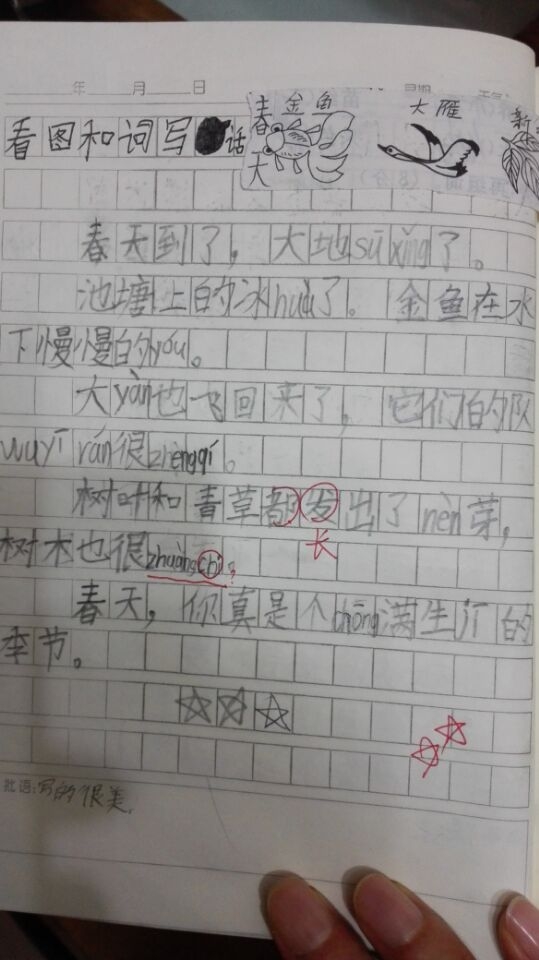 年 月 日
春 金鱼 大雁
天
看图和词写话
春天到了，大地sū xǐng了。
池塘上的冰huà了。金鱼在水
下慢慢的yóu。
大yàn也飞回来了，它们的队
wuyī rán很zhěngqí。
树叶和青草都发出了nèn芽，
长
树木也很zhuàngchi。？
春天，你真是个chōng满生jī的
季节。
批语：写的很美。